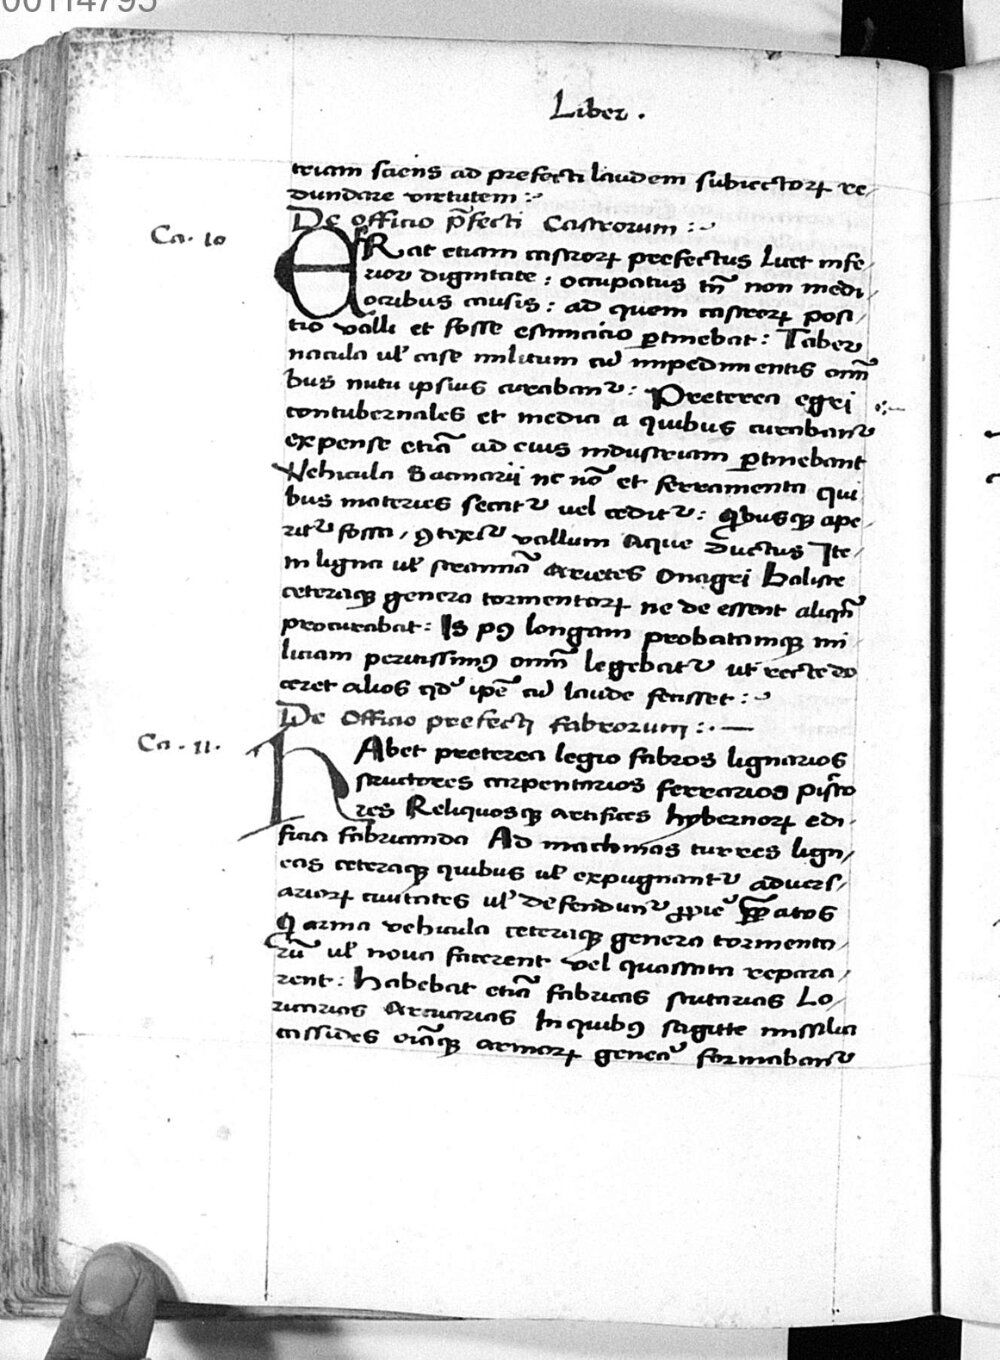 00114795
Liber .
triam sciens ad prefecti laudem subiectorꝝ re,
dundare virtutem :~
De officio p̄fecti Castrorum :~
Ca. 10
ERat etiam castrorꝝ prefectus licet infe,
rior dignitate : occupatus tn̄ non medi,
ocribus causis : ad quem castrorꝝ posi,
tio valli et fosse estimacio ꝑtinebat : Taber
nacula ul̓ case militum cū impedimentis om̄i
bus nutu ipsius curabant᷑ : Preterea egri
contubernales et medici a quibus curabant᷑
expense etiā ad eius industriam ꝑtinebant
Vehicula Sacmarii nc nō et ferramenta qui
bus materies secat᷑ vel cedit᷑ : q̄busqꝫ ape,
rit᷑ fossa, ꝯtexit᷑ vallum aque ductus Ite,
m ligna ul̓ stramīa arietes Onagri baliste
ceteraqꝫ genera tormentorꝝ ne de essent aliqn̄
procurabat : Is pꝯ longam probatamqꝫ mi
liciam peritissimꝯ om̄i legebat᷑ ut recte do
ceret alios qd᷑ ipē cū laude fecisset :~
De Officio prefecti fabrorum :. —
Ca . 11 .
HAbet preterea legio fabros lignarios
structores carpentarios ferrarios picto
res Reliquosqꝫ artifices hybernorꝝ edi
ficia fabricanda Ad machinas turres lign,
eas ceteraqꝫ quibus ul̓ expugnant᷑ aduers,
ariorꝝ ciuitates ul̓ defendunt᷑ ꝓprie p̄patos
Q̄ arma vehicula ceteraqꝫ genera tormento,
rū ul̓ noua facerent vel quassata repara,
rent : habebat etiā fabricas scutarias Lo,
ricarias Arcuarias In quibꝯ sagitte missilia
cassides oīaqꝫ armorꝝ genera᷑ formabant᷑